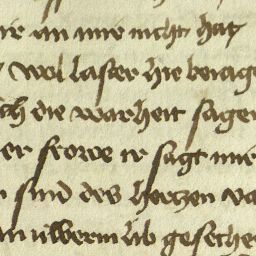 ir an mir nicht hat
wol laster hie beiage
ich die warheit sagen
er frowe ir sagt mir
sind des herczen va
an uwerm lib gesche